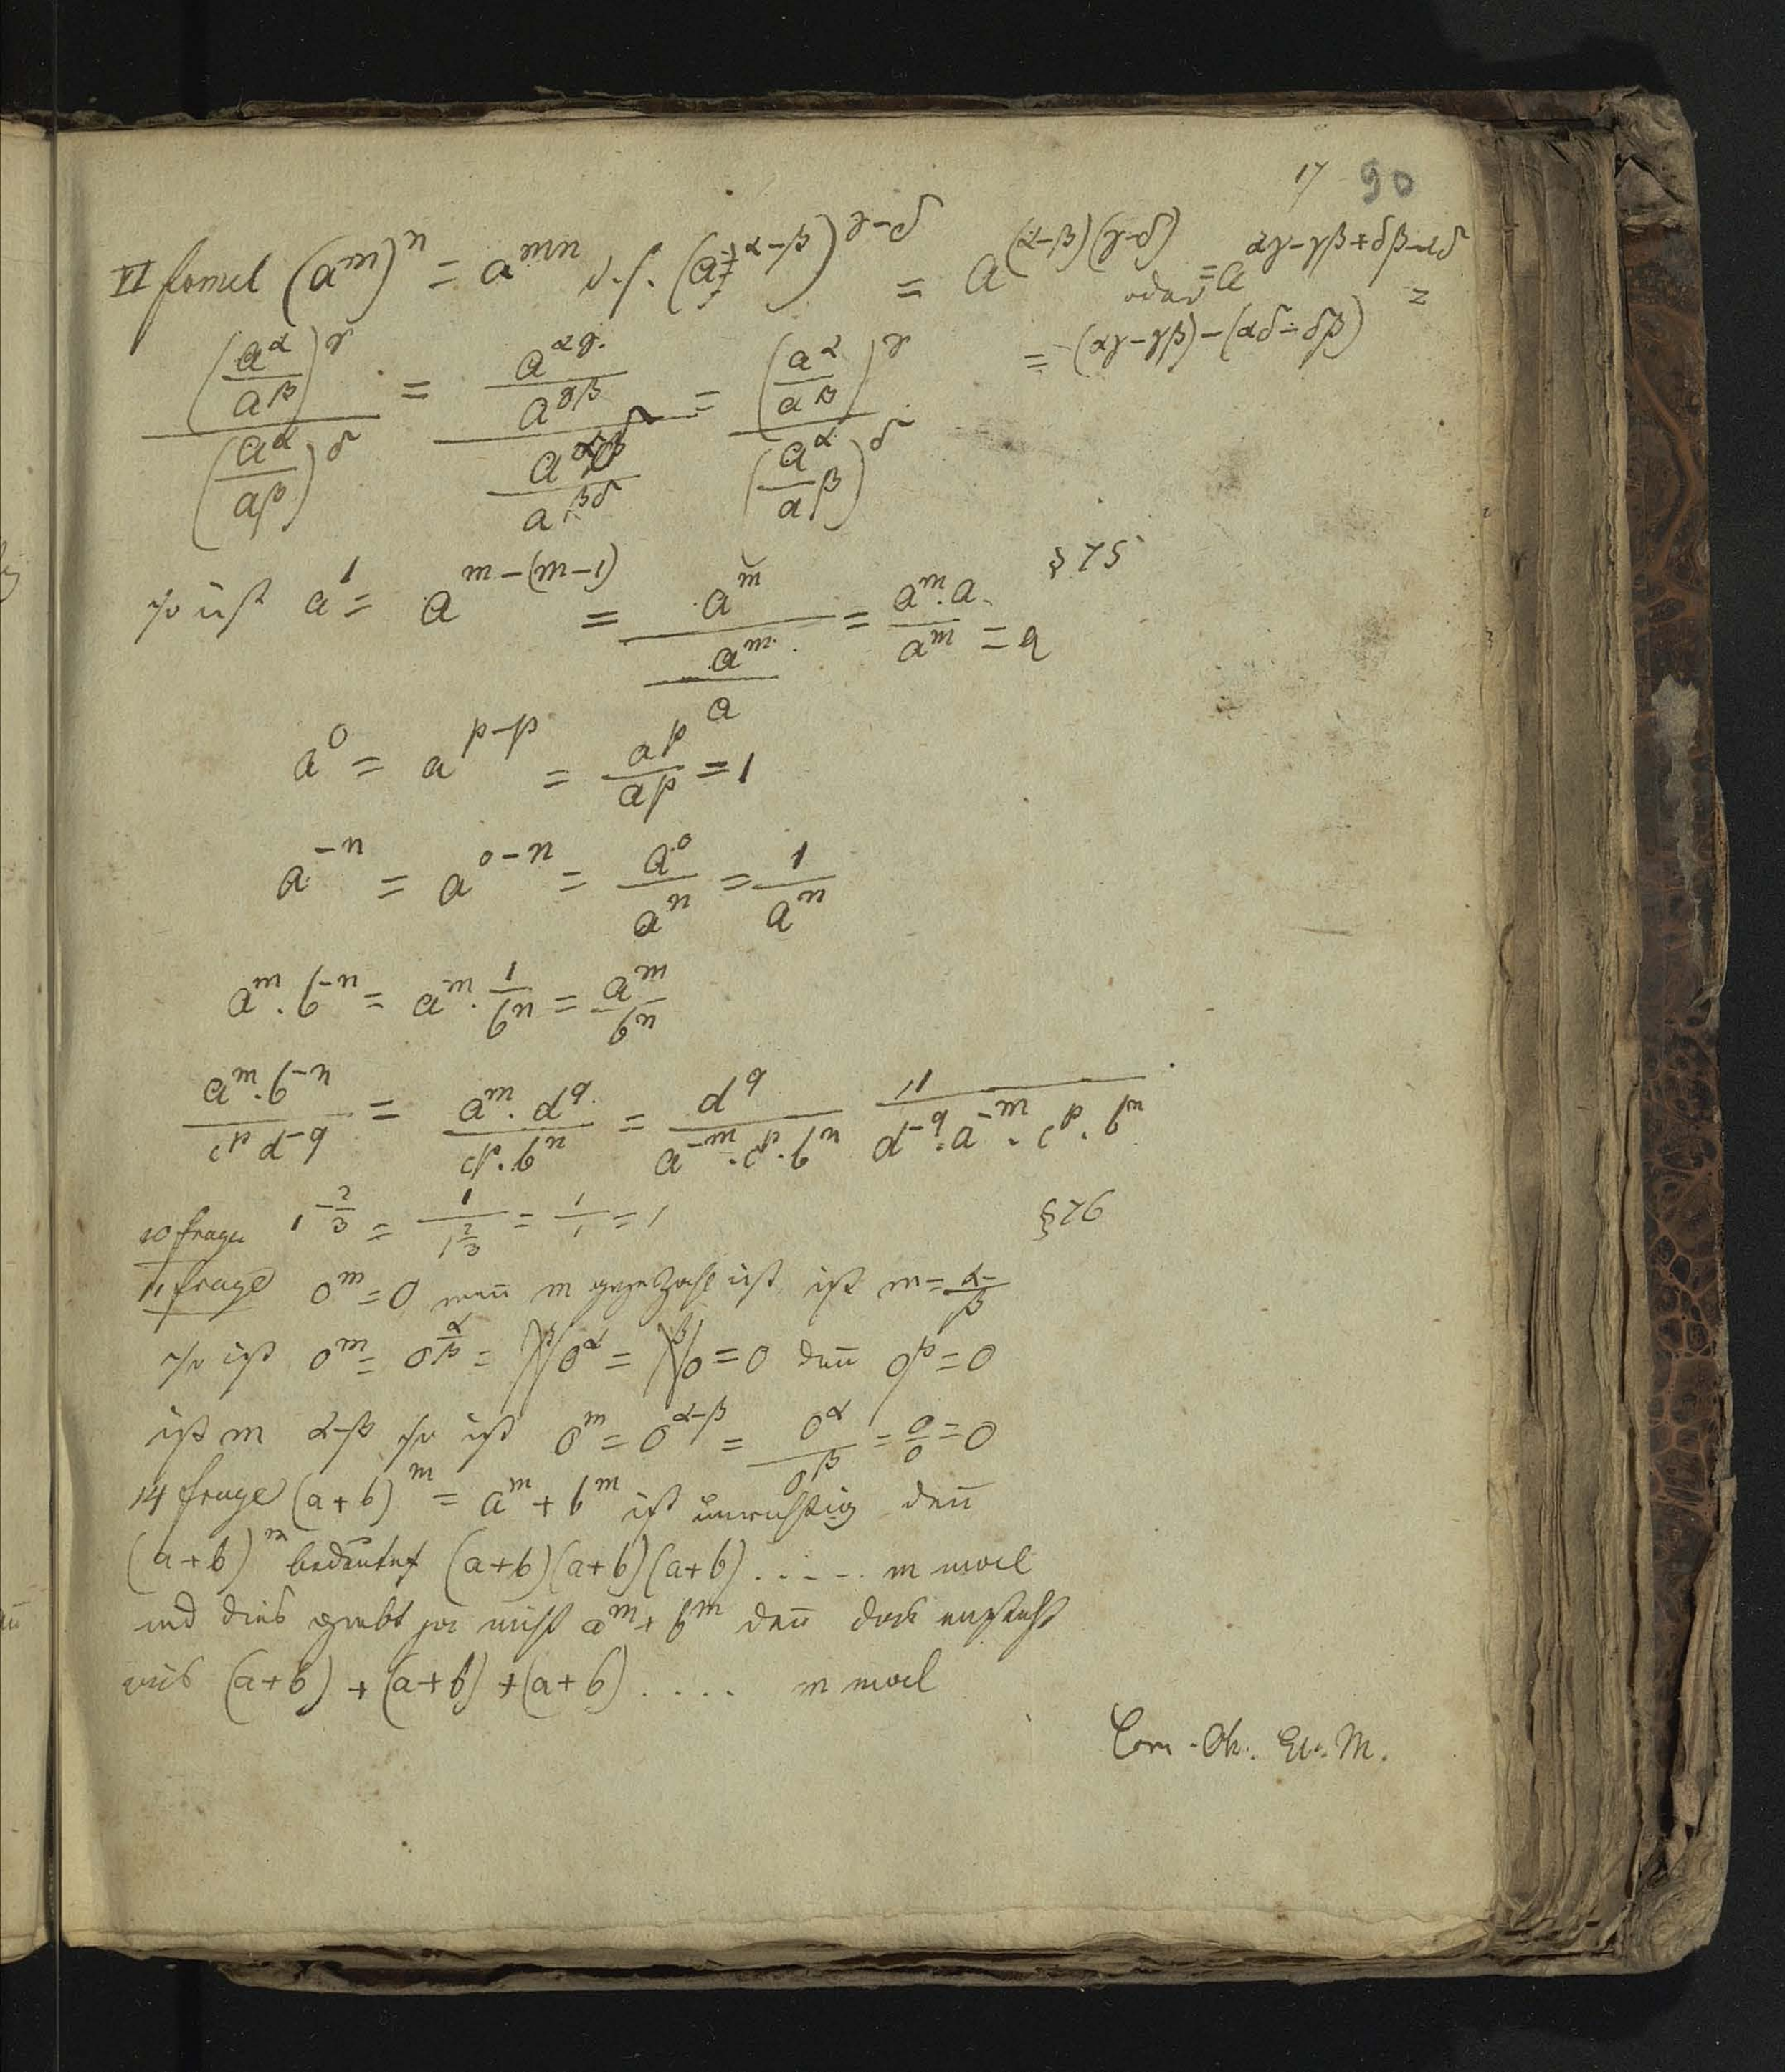 17 90
VI formel (a^m)^n = a^{mn} d.h. (a^{α-β})^{γ-δ} = a^{(α-β)(γ-δ)} = a^{αγ-γβ+δβ-αδ} =
oder = (αγ-γβ)-(αδ-δβ)
\frac{(\frac{a^α}{a^β})^γ}{(\frac{a^α}{a^β})^δ} = \frac{\frac{a^{αγ}}{a^{γβ}}}{\frac{a^{αδ}}{a^{βδ}}} = \frac{(\frac{a^α}{a^β})^γ}{(\frac{a^α}{a^β})^δ}
§ 75
so ist a^1 = a^{m-(m-1)} = \frac{a^m}{\frac{a^m}{a}} = \frac{a^m.a}{a^m} = a
a^0 = a^{p-p} = \frac{a^p}{a^p} = 1
a^{-n} = a^{0-n} = \frac{a^0}{a^n} = \frac{1}{a^n}
a^m . b^{-n} = a^m . \frac{1}{b^n} = \frac{a^m}{b^n}
\frac{a^m . b^{-n}}{c^p d^{-q}} = \frac{a^m . d^q}{c^p . b^n} = \frac{d^q}{a^{-m} . c^p . b^n} \frac{1}{d^{-q} . a^{-m} . c^p . b^n}
§ 76
10 frage 1^{-\frac{2}{3}} = \frac{1}{1^{\frac{2}{3}}} = \frac{1}{1} = 1
11 frage 0^m = 0 wen̄ m ganze Zahl ist, ist m = \frac{α}{β}
so ist 0^m = 0^{\frac{α}{β}} = \sqrt[β]{0^α} = \sqrt[β]{0} = 0 den̄ 0^β = 0
ist m α-β so ist 0^m = 0^{α-β} = \frac{0^α}{0^β} = \frac{0}{0} = 0
14 frage (a+b)^m = a^m + b^m ist unrichtig den̄
(a+b)^m bedeutet (a+b)(a+b)(a+b) ..... m mal
und dies giebt ja nicht a^m + b^m den̄ das entsteht
aus (a+b) + (a+b) + (a+b) .... m mal